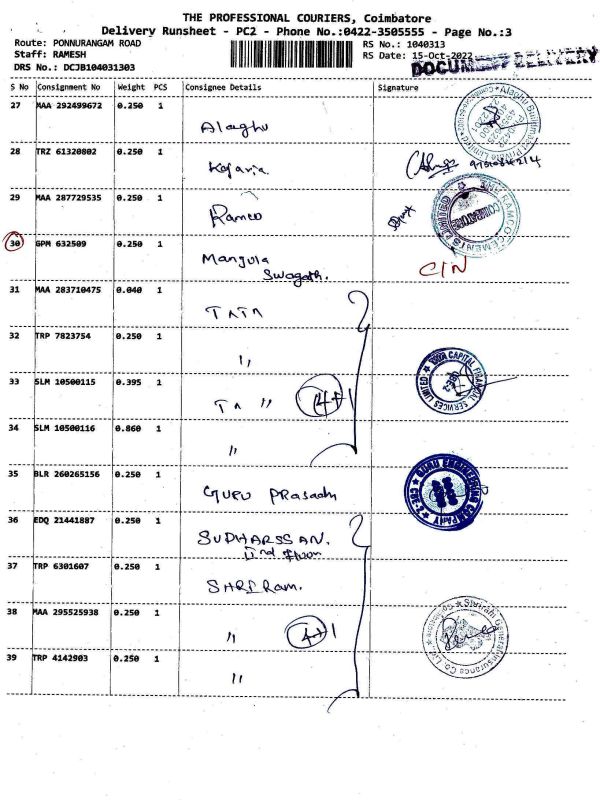 THE PROFESSIONAL COURIERS, Coimbatore
Delivery Runsheet - PC2 - Phone No.:0422-3505555 - Page No.:3
Route: PONNURANGAM ROAD RS No.: 1040313
Staff: RAMESH RS Date: 15-Oct-2022
DRS No.: DCJB104031303 DOCUMENT DELIVERY
S No Consignment No Weight PCS Consignee Details Signature
27 MAA 292499672 0.250 1
Alaghu
28 TRZ 61320802 0.250 1
Kajaria
29 MAA 287729535 0.250 1
Ramco
THE RAMCO CEMENTS LIMITED COIMBATORE
30 GPM 632509 0.250 1
Mangula
Swagath.
C/N
31 MAA 283710475 0.040 1
TATA
32 TRP 7823754 0.250 1
"
TATA CAPITAL FINANCIAL SERVICES LIMITED
33 SLM 10500115 0.395 1
TA " 4+1
34 SLM 10500116 0.860 1
"
35 BLR 260265156 0.250 1
GURU PRasadh
GURU ENGINEERING COMPANY CBE-2
36 EDQ 21441887 0.250 1
SUDHARSSAN.
IInd floor
37 TRP 6301607 0.250 1
SHRI Ram.
38 MAA 295525938 0.250 1
" 4+1
Shriram General Insurance Co. Ltd
39 TRP 4142903 0.250 1
"